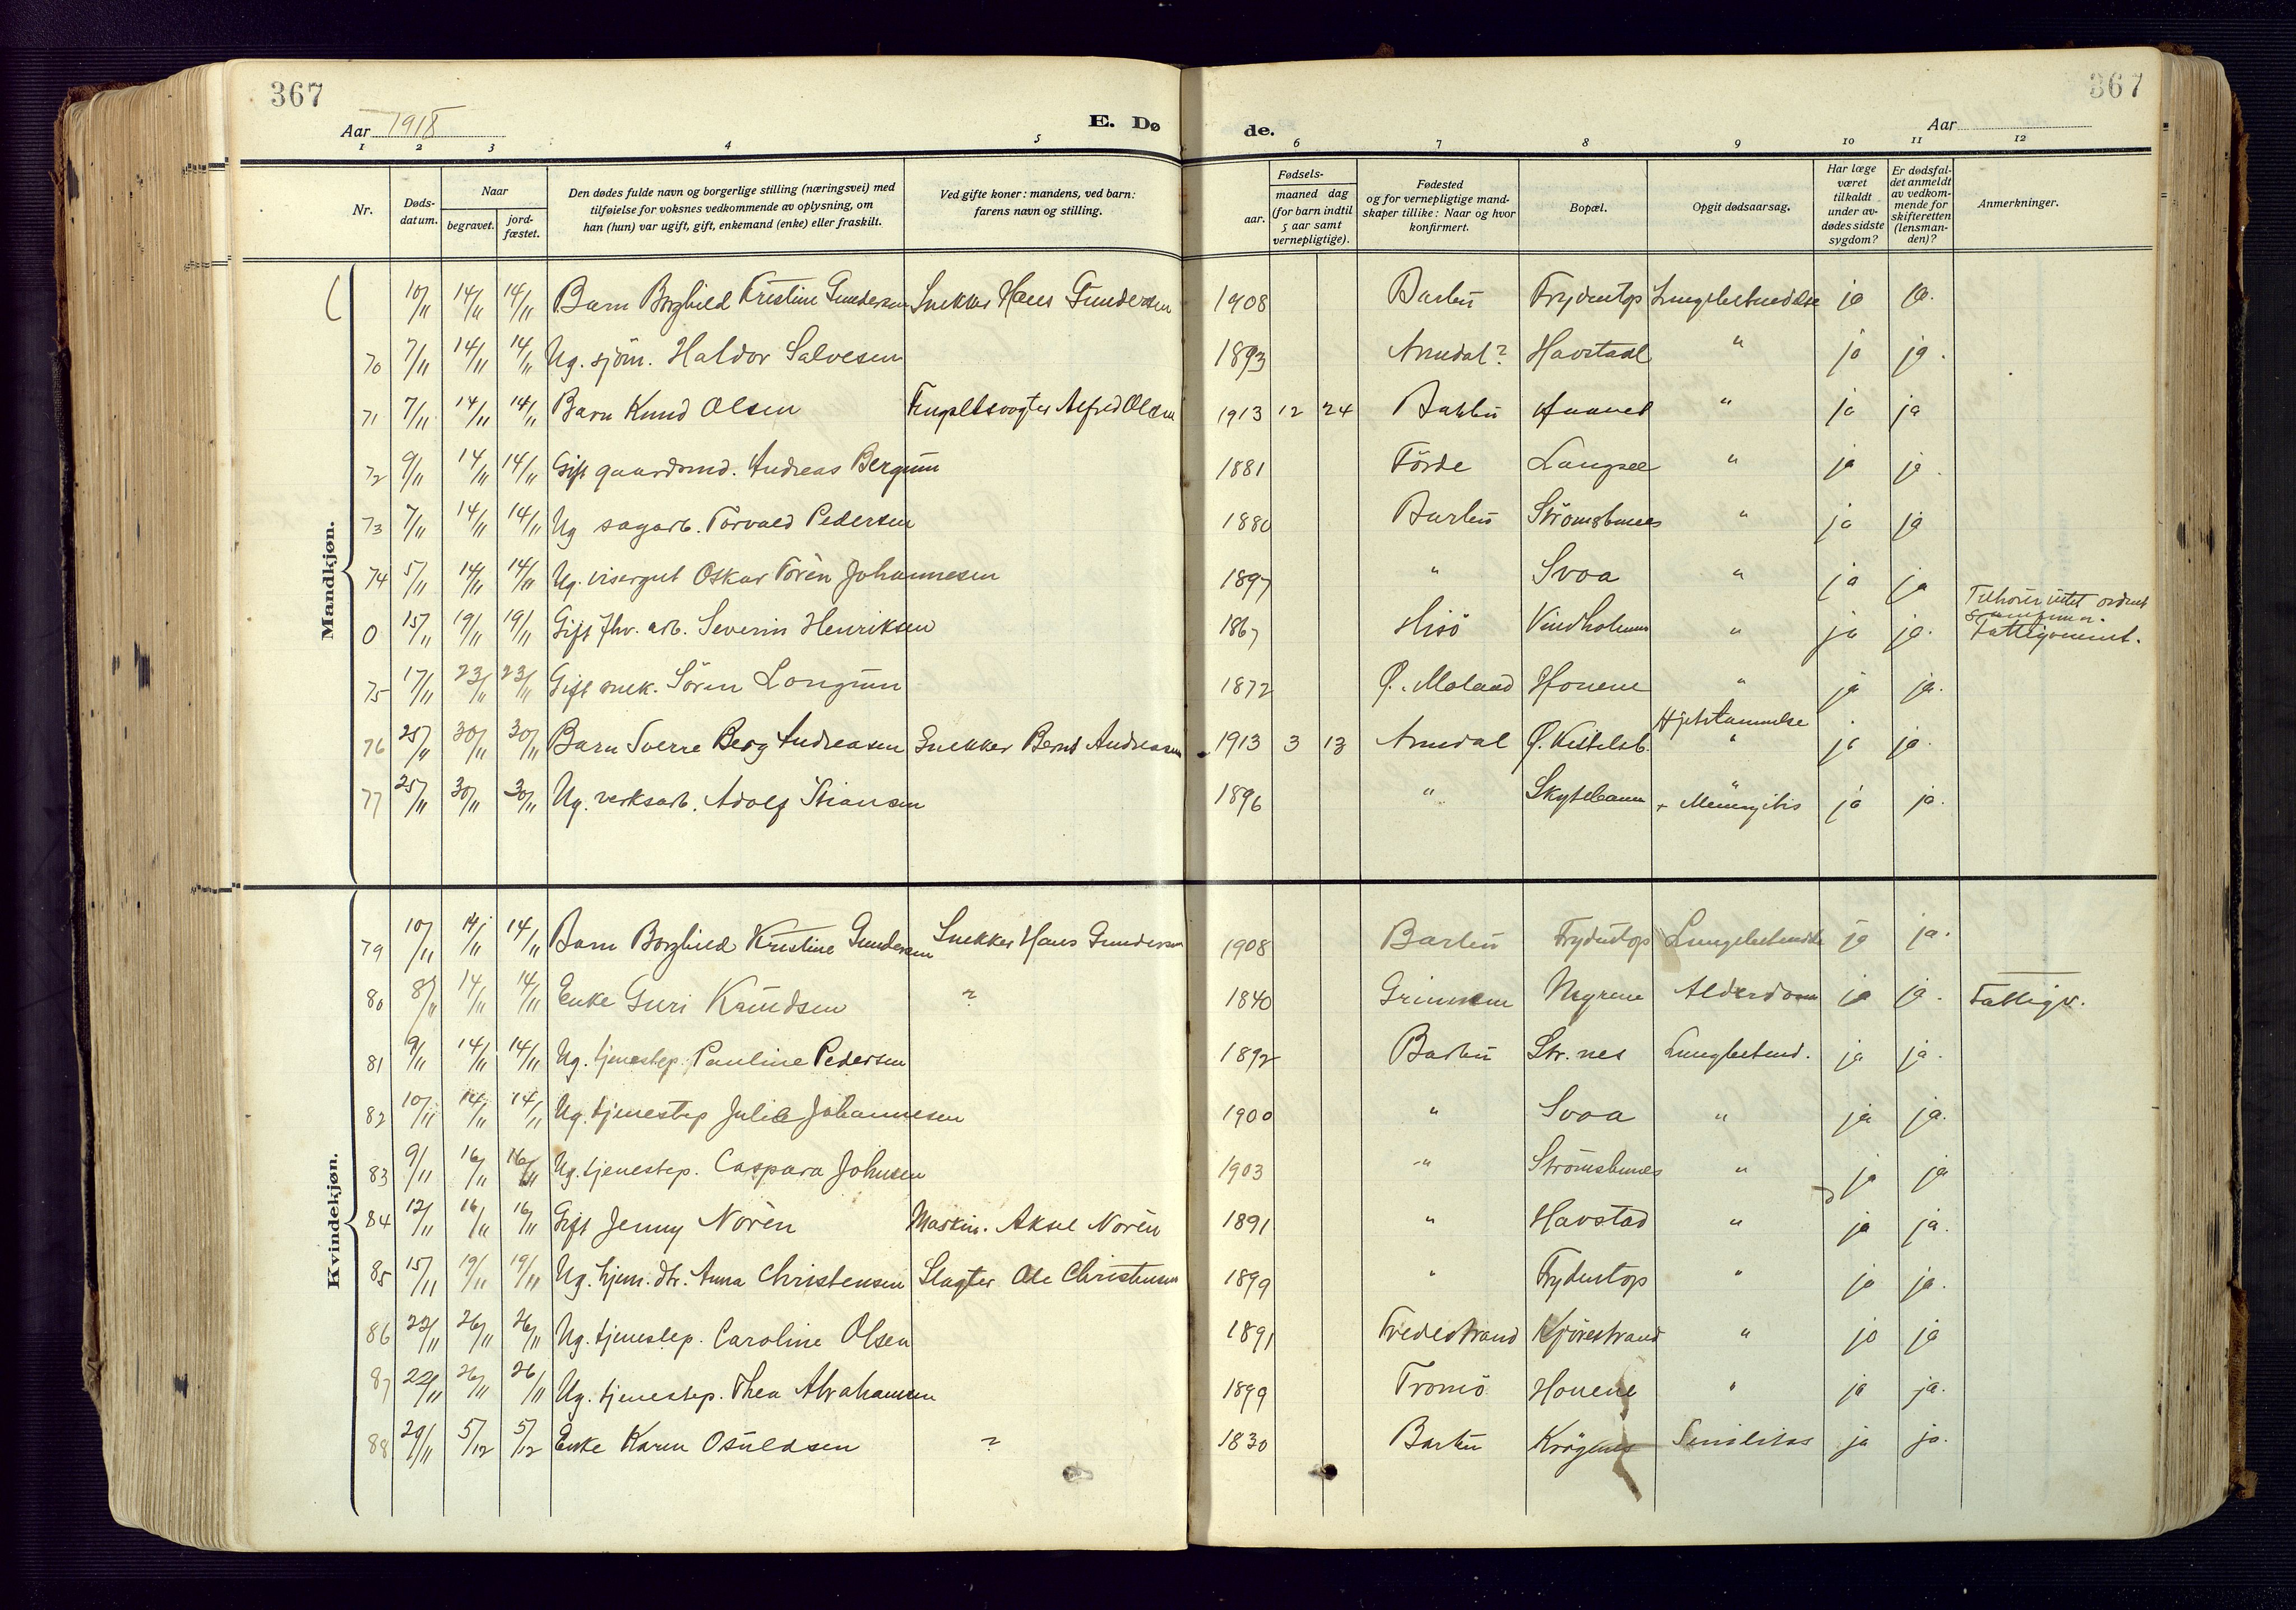 367 367
Aar 1918 E. Dø de. Aar
1 2 3 4 5 6 7 8 9 10 11 12
Nr. Døds-datum. Naar begravet. jord-fæstet. Den dødes fulde navn og borgerlige stilling (næringsvei) med tilføielse for voksnes vedkommende av oplysning, om han (hun) var ugift, gift, enkemand (enke) eller fraskilt. Ved gifte koner: mandens, ved barn: farens navn og stilling. Fødsels- aar. maaned dag (for barn indtil 5 aar samt vernepligtige). Fødested og for vernepligtige mandskaper tillike: Naar og hvor konfirmert. Bopæl. Opgit dødsaarsag. Har læge været tilkaldt under avdødes sidste sygdom? Er dødsfaldet anmeldt av vedkommende for skifteretten (lensmanden)? Anmerkninger.
Mandkjøn.
( 10/11 14/11 14/11 Barn Borghild Kristine Gundersen Snekker Hans Gundersen 1908 Barbu Frydentop Lungebetændelse ja ja.
70 7/11 14/11 14/11 Ug. sjøm. Haldor Salvesen 1893 Arendal? Havstad " ja ja.
71 7/11 14/11 14/11 Barn Knud Olsen Alfred Olsen 1913 12 24 Barbu " ja ja
72 9/11 14/11 14/11 Gift gaardsmd. Andreas Bergum 1881 Förde Langsæ " ja ja.
73 7/11 14/11 14/11 Ug sagarb. Torvald Pedersen 1880 Barbu Strömsbunes " ja ja
74 5/11 14/11 14/11 Ug. visergut Oskar Torèn Johannesen 1897 " Svoa " ja ja
0 15/11 19/11 19/11 Gift fhv. arb. Severin Henriksen 1867 Hisö Vindholmen " ja ja. Fattigunderst.
75 17/11 23/11 23/11 Gift snek. Sören Longum 1872 Ø. Moland Houene " ja ja.
76 25/11 30/11 30/11 Barn Sverre Berg Andreasen Snekker Bernt Andreasen 1913 3 13 Arendal Ø. Kittelsb. Hjertelammelse ja ja.
77 25/11 30/11 30/11 Ug. verksarb. Adolf Stiansen 1896 " Skytebanen + Meningitis ja ja.
Kvindekjøn.
79 10/11 14/11 14/11 Barn Borghild Kristine Gundersen Snekker Hans Gundersen 1908 Barbu Frydentop Lungebetændelse ja ja.
80 8/11 14/11 14/11 Enke Guri Knudsen ? 1840 Grimstad Myrene Alderdom ja ja. Fattigv.
81 9/11 14/11 14/11 Ug. tjenestep. Pauline Pedersen 1892 Barbu Str. nes Lungebetænd. ja ja.
82 10/11 14/11 14/11 Ug. tjenestep Julie Johannesen 1900 " Svoa " ja ja.
83 9/11 16/11 16/11 Ug. tjenestep. Caspara Johnsen 1903 " Strömsbunes " ja ja
84 12/11 16/11 16/11 Gift Jenny Norèn Maskin. Aksel Norèn 1891 " Havstad " ja ja.
85 15/11 19/11 19/11 Ug. hjem. dtr. Anna Christensen Slagter Ole Christensen 1899 " Frydentop " ja ja.
86 22/11 26/11 26/11 Ug. tjenestep. Caroline Olsen 1891 Tvedestrand Kjørestrand " ja ja
87 22/11 26/11 26/11 Ug. tjenestep. Thea Abrahamsen 1899 Tromö Houene " ja ja.
88 29/11 5/12 5/12 Enke Karen Osuldsen ? 1830 Barbu Krögenes Senilitas ja ja.